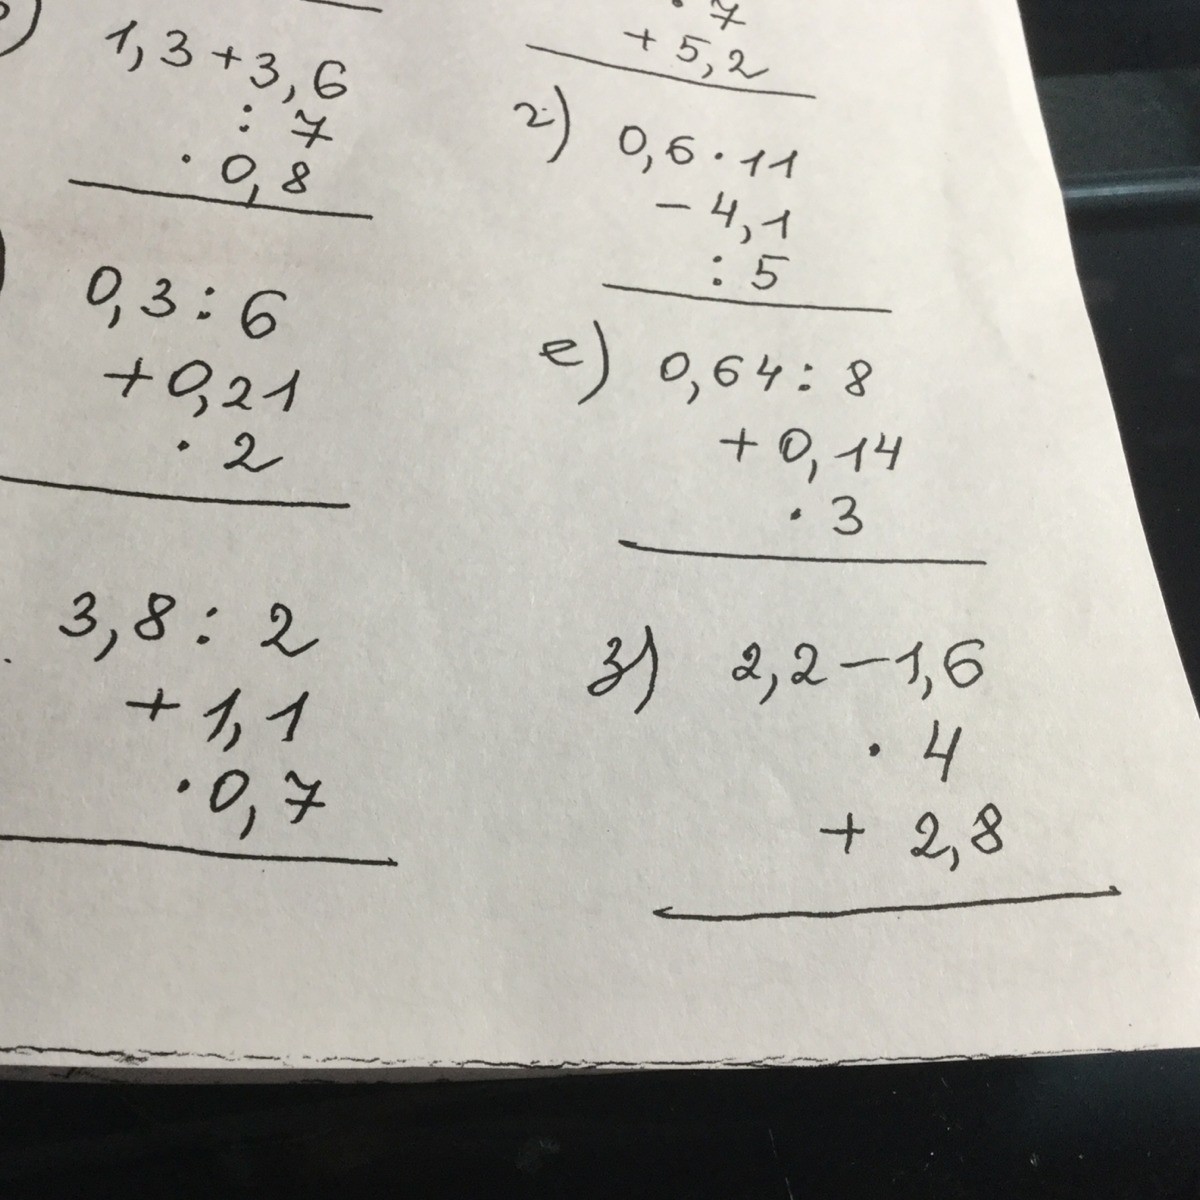 1,3 + 3,6
: 7
· 0,8
0,3 : 6
+ 0,21
· 2
3,8 : 2
+ 1,1
· 0,7
· 7
+ 5,2
г) 0,6 · 11
- 4,1
: 5
е) 0,64 : 8
+ 0,14
· 3
з) 2,2 - 1,6
· 4
+ 2,8